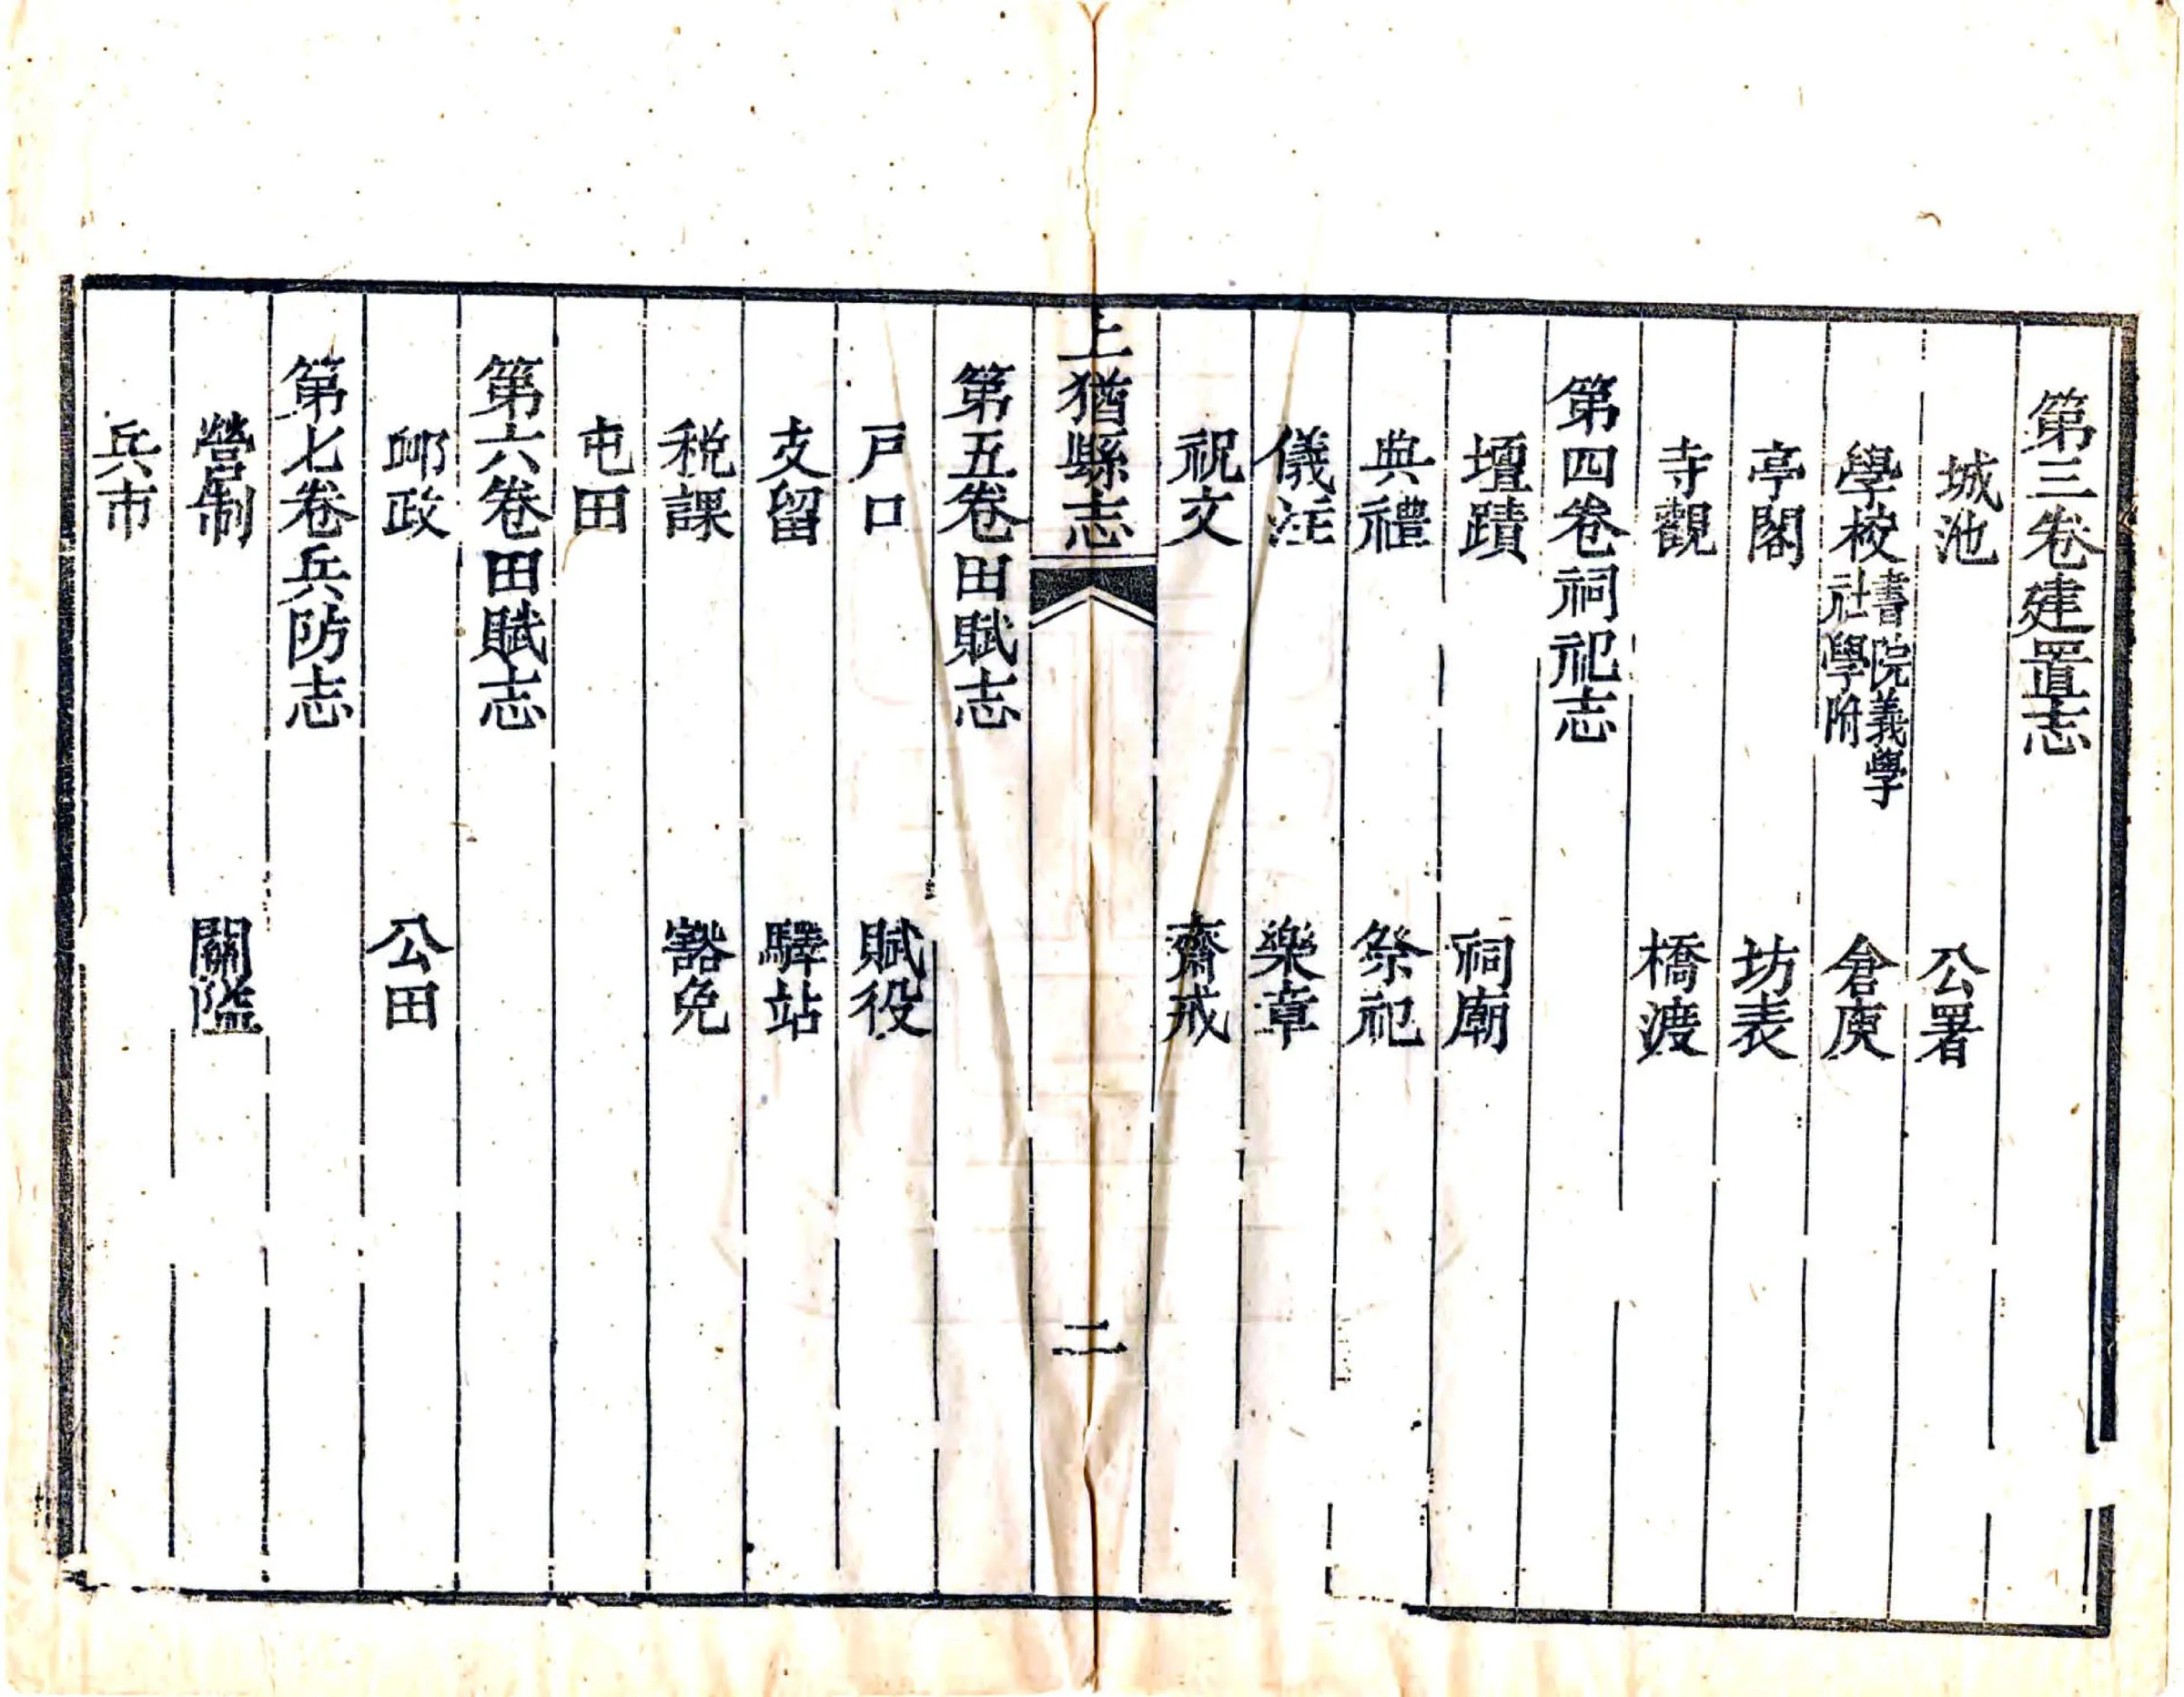 第三卷建置志
城池　公署
學校書院義學社學附　倉庾
亭閣　坊表
寺觀　橋渡
第四卷祠祀志
壇蹟　祠廟
典禮　祭祀
儀注　樂章
祝文　齋戒
上猶縣志　二
第五卷田賦志
戸口　賦役
支留　驛站
税課　豁免
屯田
第六卷田賦志
邮政　公田
第七卷兵防志
營制　關隘
兵市